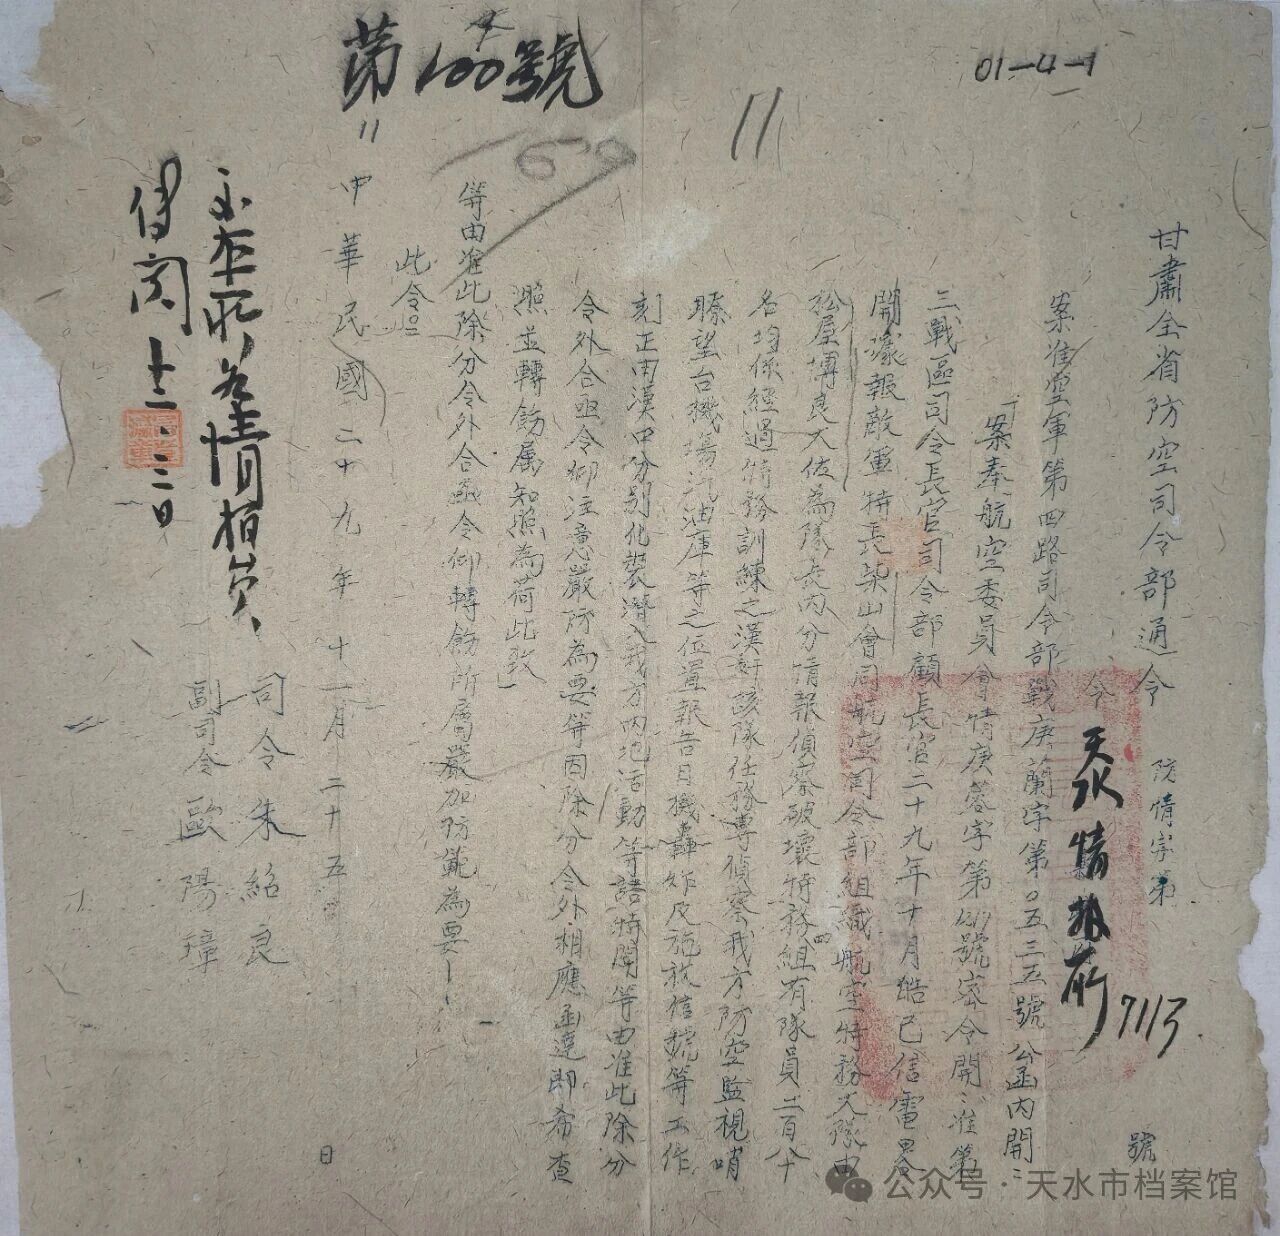 第100號
01-4-1
11
甘肅全省防空司令部通令 防情字第 號
7113
令 天水情报所
案准空軍第四路司令部戰庚蘭字第〇五三五號公函內開：
「案奉航空委員會情庚蓉字第 號密令開：准第
三戰區司令長官司令部顧長官二十九年十月皓已信電畧
開據報敵軍特長柴山會同航空司令部組織航空特務大隊由
松屋博良大佐為隊長內分情報偵察破壞特務四組有隊員二百八十
名均係經過特務訓練之漢奸該隊任務專偵察我方防空監視哨
瞭望台機場汽油庫等之位置報告日機轟炸及施放信號等工作
刻正由漢中分別化裝潛入我方內地活動等語特開等由准此除分
令外合亟令仰注意嚴防為要等因除分令外相應函達即希查
照並轉飭属知照為荷此致」
等由准此除分令外合亟令仰轉飭所屬嚴加防範為要！
此令。
中華民國二十九年十一月二十五日
司令 朱紹良
副司令 歐陽璋
傳閱 十二.三日
公众号·天水市档案馆